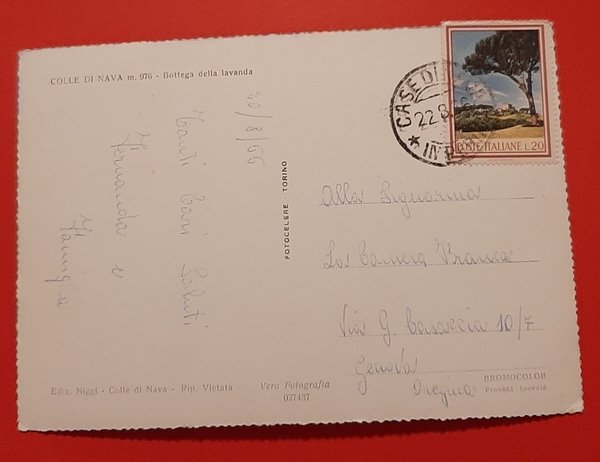 COLLE DI NAVA m. 976 - Bottega della lavanda
20/8/66
Tanti Cari Saluti
Fernanda e
Famiglia
FOTOCELERE - TORINO
CASE DI
22.8
POSTE ITALIANE L.20
Alla Signorina
Franca
Via G. Casaccia 10/7
Genova
Ediz. Niggi - Colle di Nava - Rip. Vietata
Vera Fotografia
027437
BROMOCOLOR
Procédé breveté